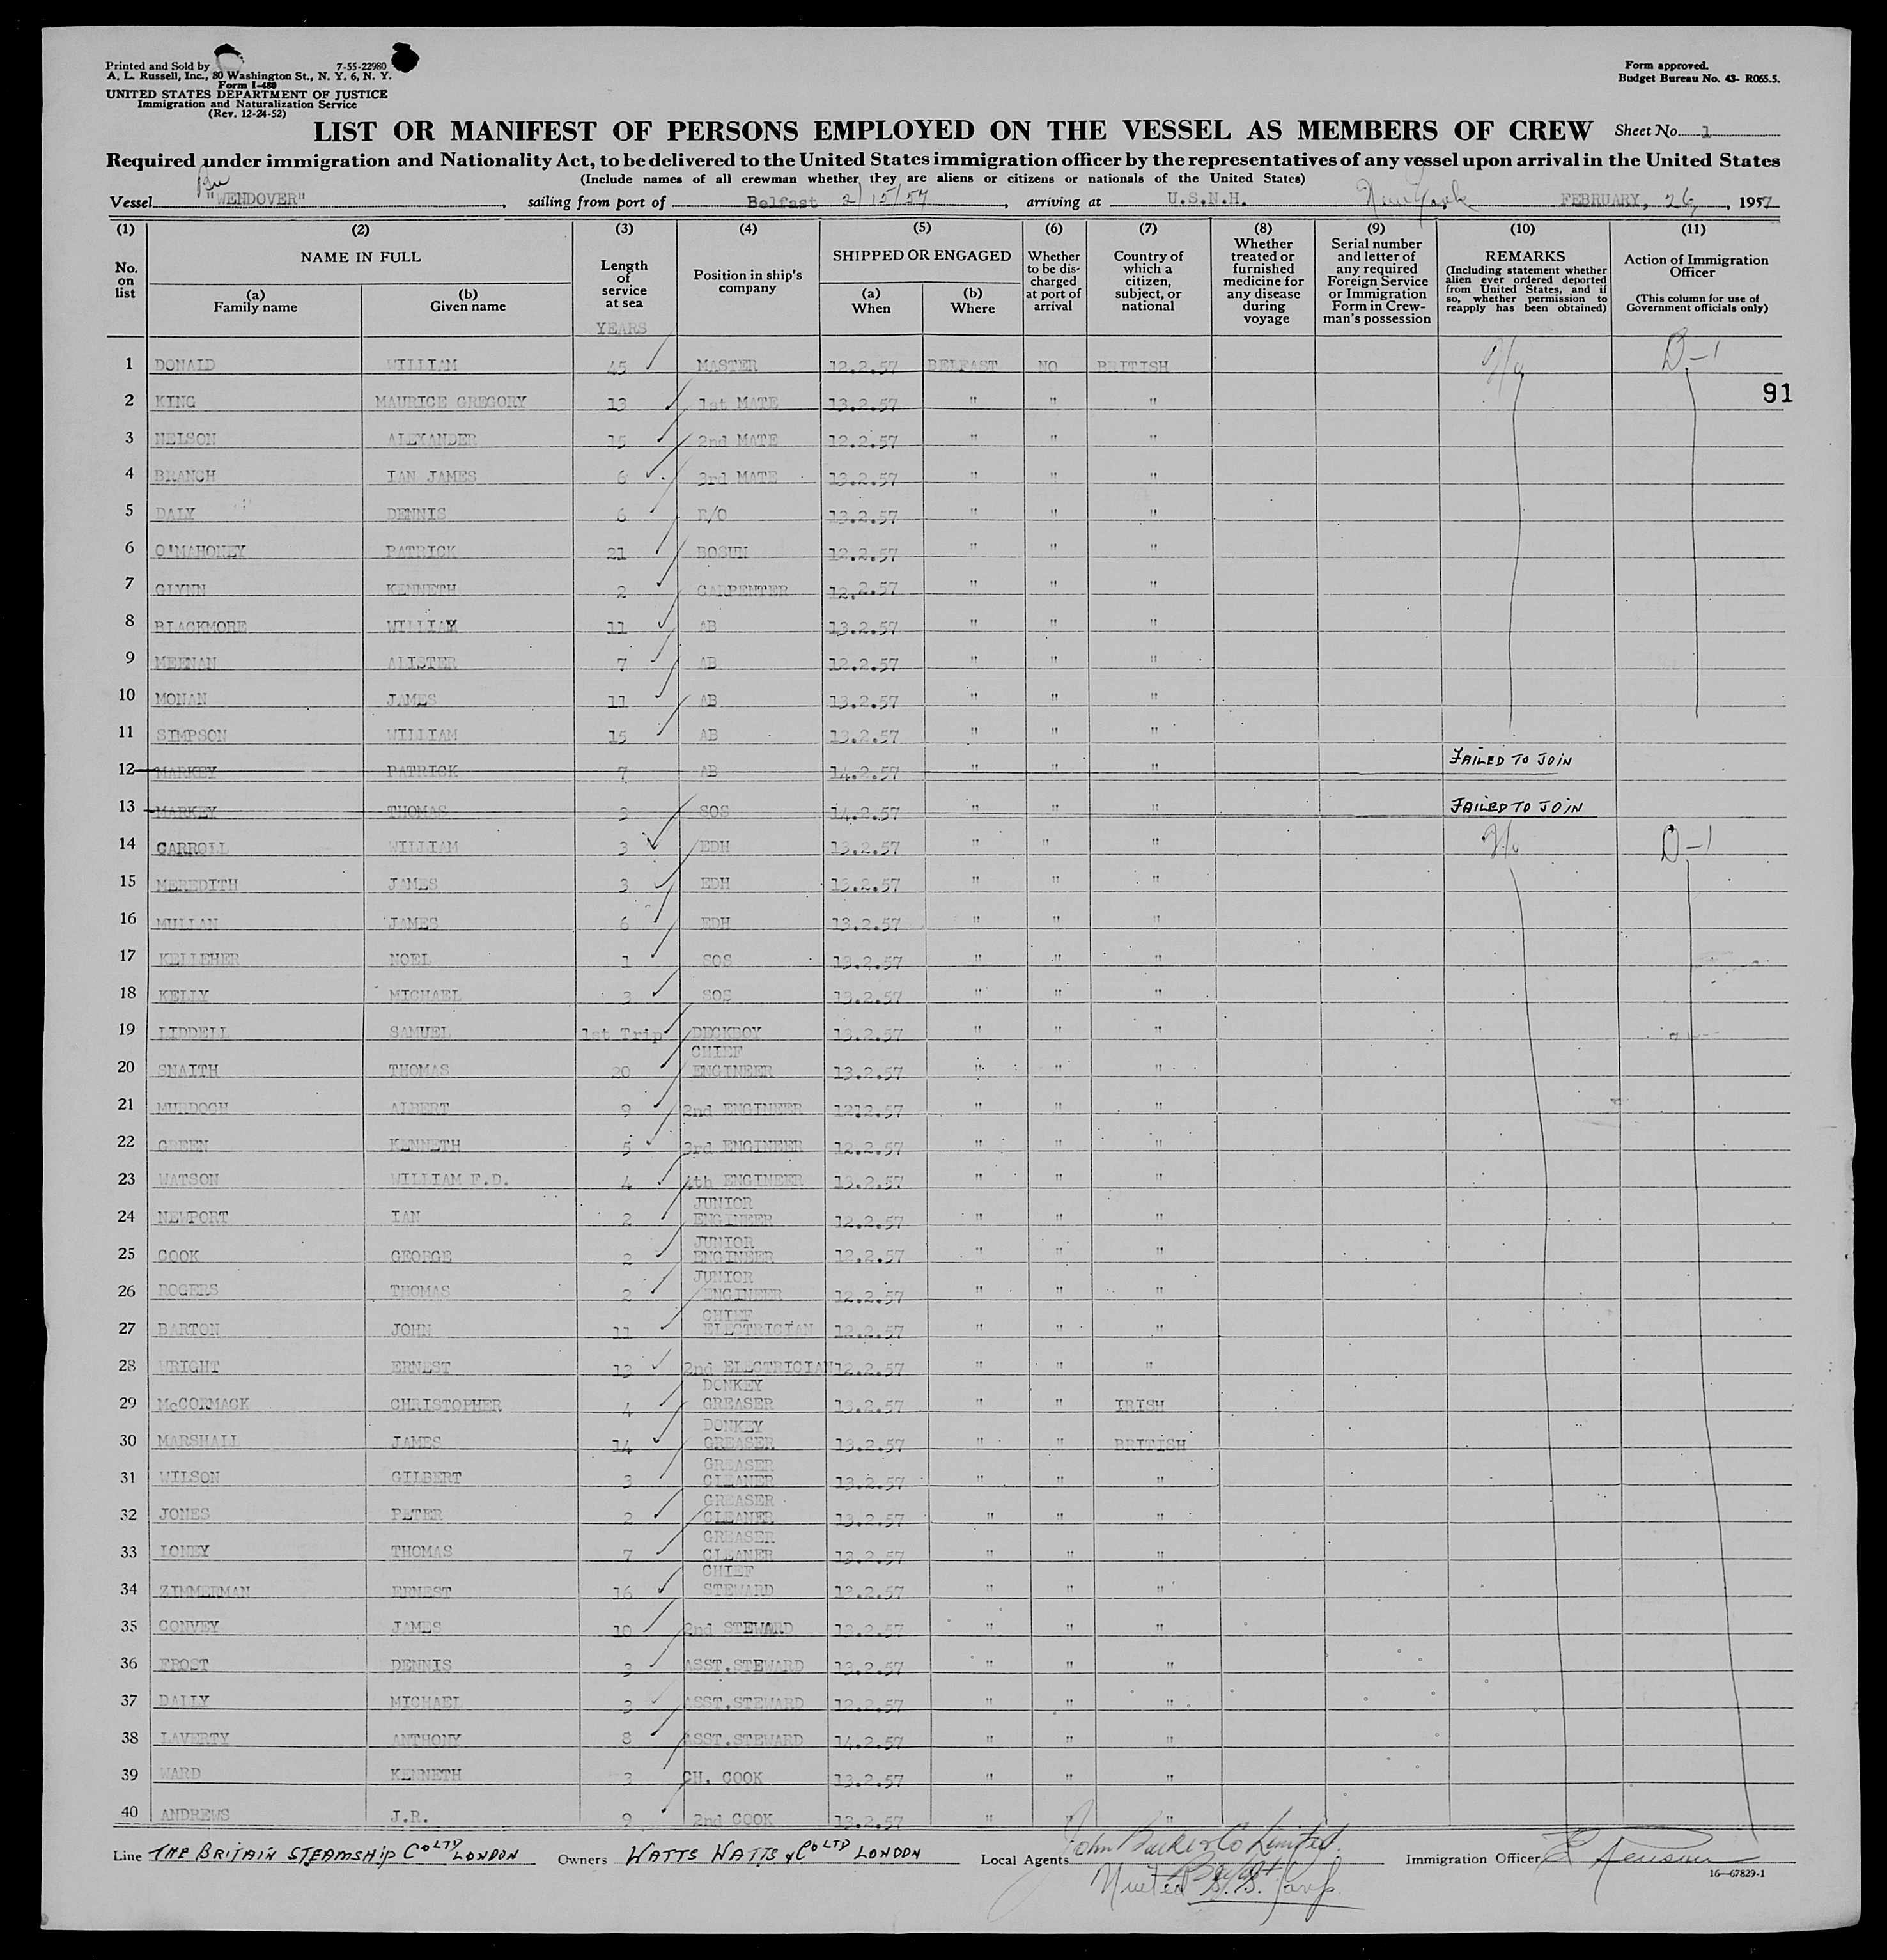 Printed and Sold by 7-55-22980
A. L. Russell, Inc., 80 Washington St., N. Y. 6, N. Y.
Form I-480
UNITED STATES DEPARTMENT OF JUSTICE
Immigration and Naturalization Service
(Rev. 12-24-52)
Form approved.
Budget Bureau No. 43- R065.5.
LIST OR MANIFEST OF PERSONS EMPLOYED ON THE VESSEL AS MEMBERS OF CREW Sheet No. 1
Required under immigration and Nationality Act, to be delivered to the United States immigration officer by the representatives of any vessel upon arrival in the United States
(Include names of all crewman whether they are aliens or citizens or nationals of the United States)
Vessel "WENDOVER", sailing from port of Belfast 2/15/57, arriving at U.S.N.H. New York FEBRUARY, 26, 1957
(1) (2) (3) (4) (5) (6) (7) (8) (9) (10) (11)
No. on list
NAME IN FULL
(a) Family name
(b) Given name
Length of service at sea
YEARS
Position in ship's company
SHIPPED OR ENGAGED
(a) When
(b) Where
Whether to be discharged at port of arrival
Country of which a citizen, subject, or national
Whether treated or furnished medicine for any disease during voyage
Serial number and letter of any required Foreign Service or Immigration Form in Crewman's possession
REMARKS
(Including statement whether alien ever ordered deported from United States, and if so, whether permission to reapply has been obtained)
Action of Immigration Officer
(This column for use of Government officials only)
1 DONALD WILLIAM 45 MASTER 12.2.57 BELFAST NO BRITISH D-1
91
2 KING MAURICE GREGORY 13 1st MATE 13.2.57 " " "
3 NELSON ALEXANDER 15 2nd MATE 12.2.57 " " "
4 BRANCH IAN JAMES 6 3rd MATE 13.2.57 " " "
5 DALY DENNIS 6 R/O 13.2.57 " " "
6 O'MAHONEY PATRICK 21 BOSUN 12.2.57 " " "
7 GLYNN KENNETH 2 CARPENTER 12.2.57 " " "
8 BLACKMORE WILLIAM 11 AB 13.2.57 " " "
9 MEENAN ALISTER 7 AB 12.2.57 " " "
10 MONAN JAMES 11 AB 13.2.57 " " "
11 SIMPSON WILLIAM 15 AB 13.2.57 " " "
12 MARKEY PATRICK 7 AB 14.2.57 " " " FAILED TO JOIN
13 MARKEY THOMAS 3 SOS 14.2.57 " " " FAILED TO JOIN
14 CARROLL WILLIAM 3 EDH 13.2.57 " " " D-1
15 MEREDITH JAMES 3 EDH 13.2.57 " " "
16 MULLAN JAMES 6 EDH 13.2.57 " " "
17 KELLEHER NOEL 1 SOS 13.2.57 " " "
18 KELLY MICHAEL 3 SOS 13.2.57 " " "
19 LIDDELL SAMUEL 1st Trip DECKBOY 13.2.57 " " "
20 SNAITH THOMAS 20 CHIEF ENGINEER 13.2.57 " " "
21 MURDOCH ALBERT 9 2nd ENGINEER 1212.57 " " "
22 GREEN KENNETH 5 3rd ENGINEER 12.2.57 " " "
23 WATSON WILLIAM F.D. 4 4th ENGINEER 13.2.57 " " "
24 NEWPORT IAN 2 JUNIOR ENGINEER 12.2.57 " " "
25 COOK GEORGE 2 JUNIOR ENGINEER 12.2.57 " " "
26 ROGERS THOMAS 2 JUNIOR ENGINEER 12.2.57 " " "
27 BARTON JOHN 11 CHIEF ELECTRICIAN 12.2.57 " " "
28 WRIGHT ERNEST 13 2nd ELECTRICIAN 12.2.57 " " "
29 McCORMACK CHRISTOPHER 4 DONKEY GREASER 13.2.57 " " IRISH
30 MARSHALL JAMES 14 DONKEY GREASER 13.2.57 " " BRITISH
31 WILSON GILBERT 3 GREASER CLEANER 13.2.57 " " "
32 JONES PETER 2 GREASER CLEANER 13.2.57 " " "
33 LONEY THOMAS 7 GREASER CLEANER 13.2.57 " " "
34 ZIMMERMAN ERNEST 16 CHIEF STEWARD 13.2.57 " " "
35 CONVEY JAMES 10 2nd STEWARD 13.2.57 " " "
36 FROST DENNIS 3 ASST.STEWARD 13.2.57 " " "
37 DALLY MICHAEL 3 ASST.STEWARD 12.2.57 " " "
38 LAVERTY ANTHONY 8 ASST.STEWARD 14.2.57 " " "
39 WARD KENNETH 3 CH. COOK 13.2.57 " " "
40 ANDREWS J.R. 9 2nd COOK 13.2.57 " " "
Line THE BRITAIN STEAMSHIP Co LTD LONDON Owners WATTS WATTS & Co LTD LONDON Local Agents John Burke & Co Limited. Immigration Officer
Belfast
United S.S. Corp.
16—67829-1